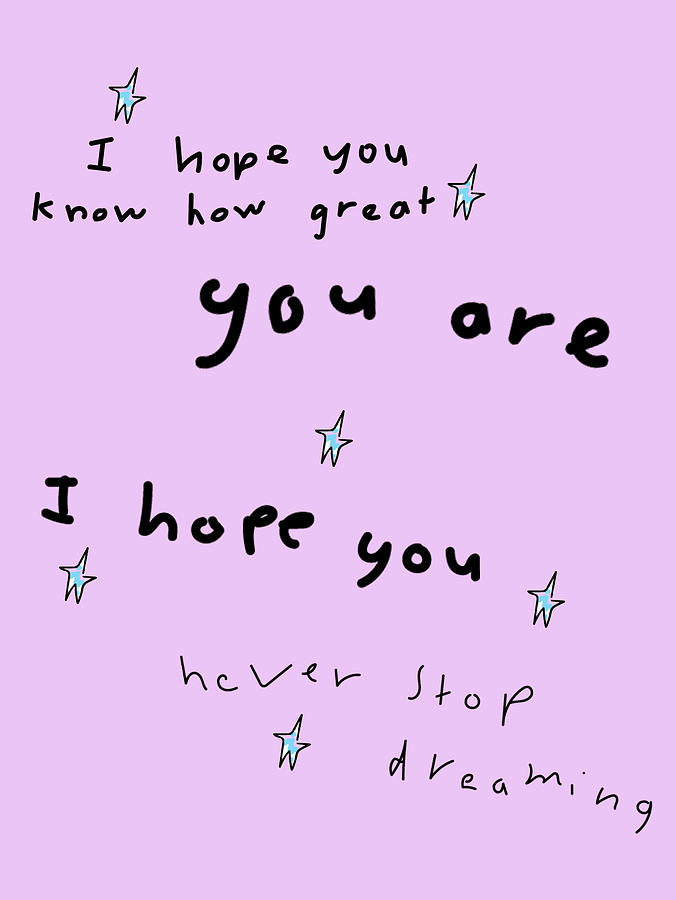 I hope you
know how great
you are
I hope you
never stop
dreaming